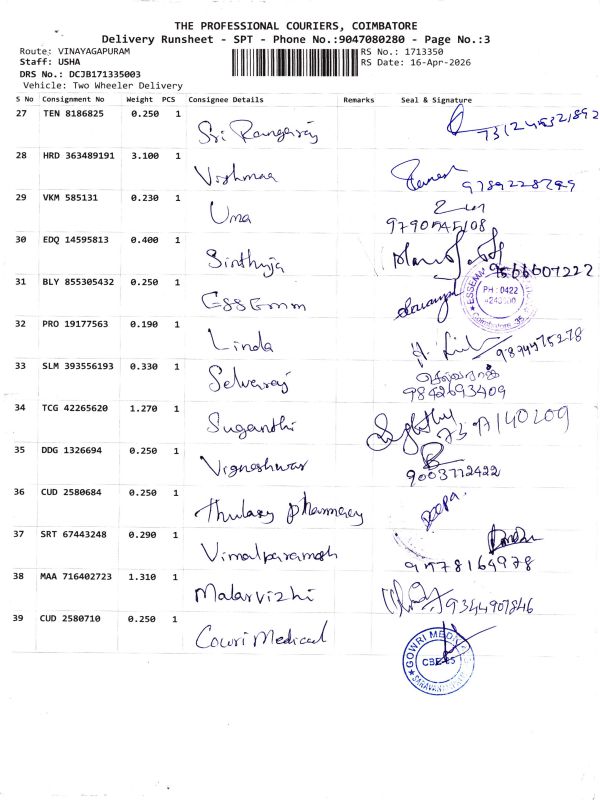 THE PROFESSIONAL COURIERS, COIMBATORE
Delivery Runsheet - SPT - Phone No.:9047080280 - Page No.:3
Route: VINAYAGAPURAM
RS No.: 1713350
Staff: USHA
RS Date: 16-Apr-2026
DRS No.: DCJB171335003
Vehicle: Two Wheeler Delivery
S No Consignment No Weight PCS Consignee Details Remarks Seal & Signature
27 TEN 8186825 0.250 1 Sri Rangaraj
28 HRD 363489191 3.100 1 Vishmaa 9789228799
29 VKM 585131 0.230 1 Uma 9790545108
30 EDQ 14595813 0.400 1 Sinthuja 9566607222
31 BLY 855305432 0.250 1 ESSEmm PH : 0422
Coimbatore
32 PRO 19177563 0.190 1 Linda 9894975278
33 SLM 393556193 0.330 1 Selvaraj செல்வராஜ்
9842693409
34 TCG 42265620 1.270 1 Suganthi
35 DDG 1326694 0.250 1 Vigneshwar 9003772422
36 CUD 2580684 0.250 1 Thulasy pharmacy
37 SRT 67443248 0.290 1 Vimalparamesh
38 MAA 716402723 1.310 1 Malarvizhi 9344907846
39 CUD 2580710 0.250 1 Gowri Medical GOWRI MEDICAL